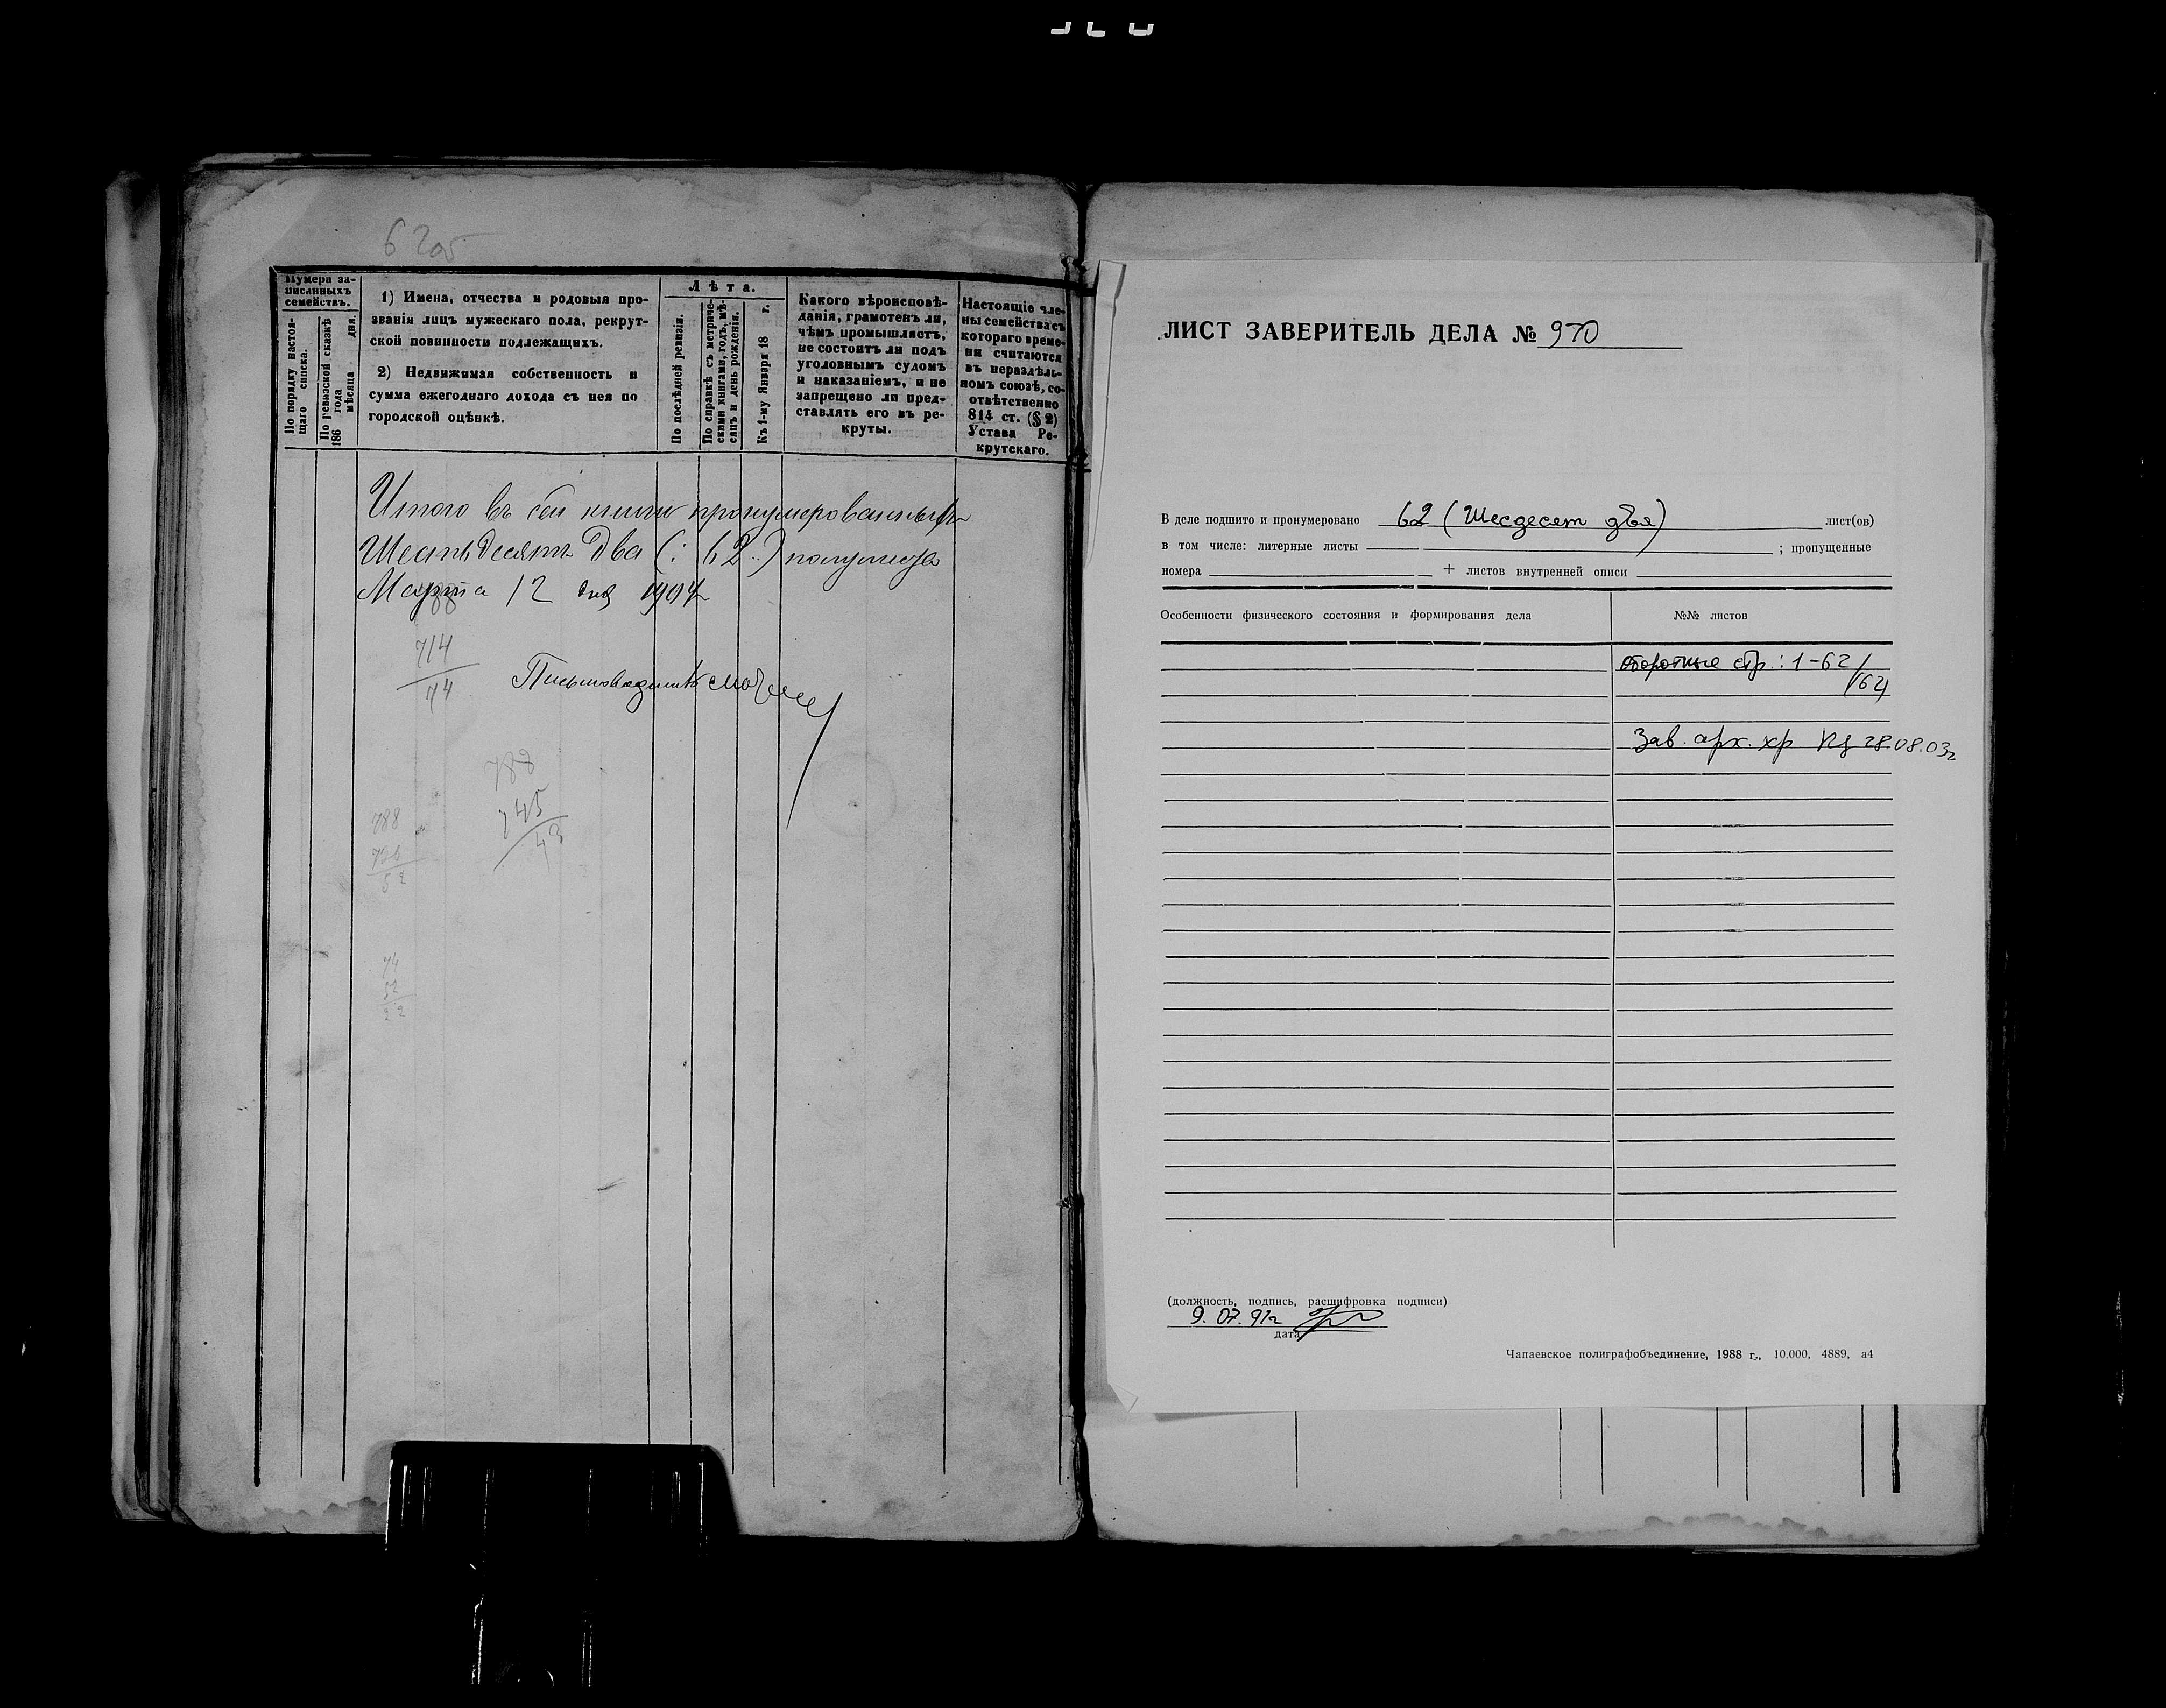 62 об
Нумера за-
писанныхъ
семействъ.
По порядку настоя-
щаго списка.
По ревизской сказкѣ
186 года
мѣсяца дня.
1) Имена, отчества и родовыя про-
званія лицъ мужескаго пола, рекрут-
ской повинности подлежащихъ.
2) Недвижимая собственность и
сумма ежегоднаго дохода съ нея по
городской оцѣнкѣ.
Лѣта.
По послѣдней ревизіи.
По справкѣ съ метриче-
скими книгами, годъ, мѣ-
сяцъ и день рожденія.
Къ 1-му Января 18 г.
Какого вѣроисповѣ-
данія, грамотенъ ли,
чѣмъ промышляетъ,
не состоитъ ли подъ
уголовнымъ судомъ
и наказаніемъ, и не
запрещено ли пред-
ставлять его въ ре-
круты.
Настоящіе чле-
ны семейства съ
котораго време-
ни считаются
въ нераздѣль-
номъ союзѣ, со-
отвѣтственно
814 ст. (§ 2)
Устава Ре-
крутскаго.
Итого въ сей книги пронумерованныхъ
Шестьдесятъ два (: 62 :) полулиста
Марта 12 дня 1904 г
788
714
74
Письмоводитель
788
745
43
788
736
52
74
52
22
ЛИСТ ЗАВЕРИТЕЛЬ ДЕЛА № 970
В деле подшито и пронумеровано 62 (Шесдесет два) лист(ов)
в том числе: литерные листы ; пропущенные
номера + листов внутренней описи
Особенности физического состояния и формирования дела №№ листов
оборотные стр.: 1-62/
/62/
Зав. арх. хр 28.08.03г
(должность, подпись, расшифровка подписи)
9. 07. 91г
дата
Чапаевское полиграфобъединение, 1988 г., 10.000, 4889, а4